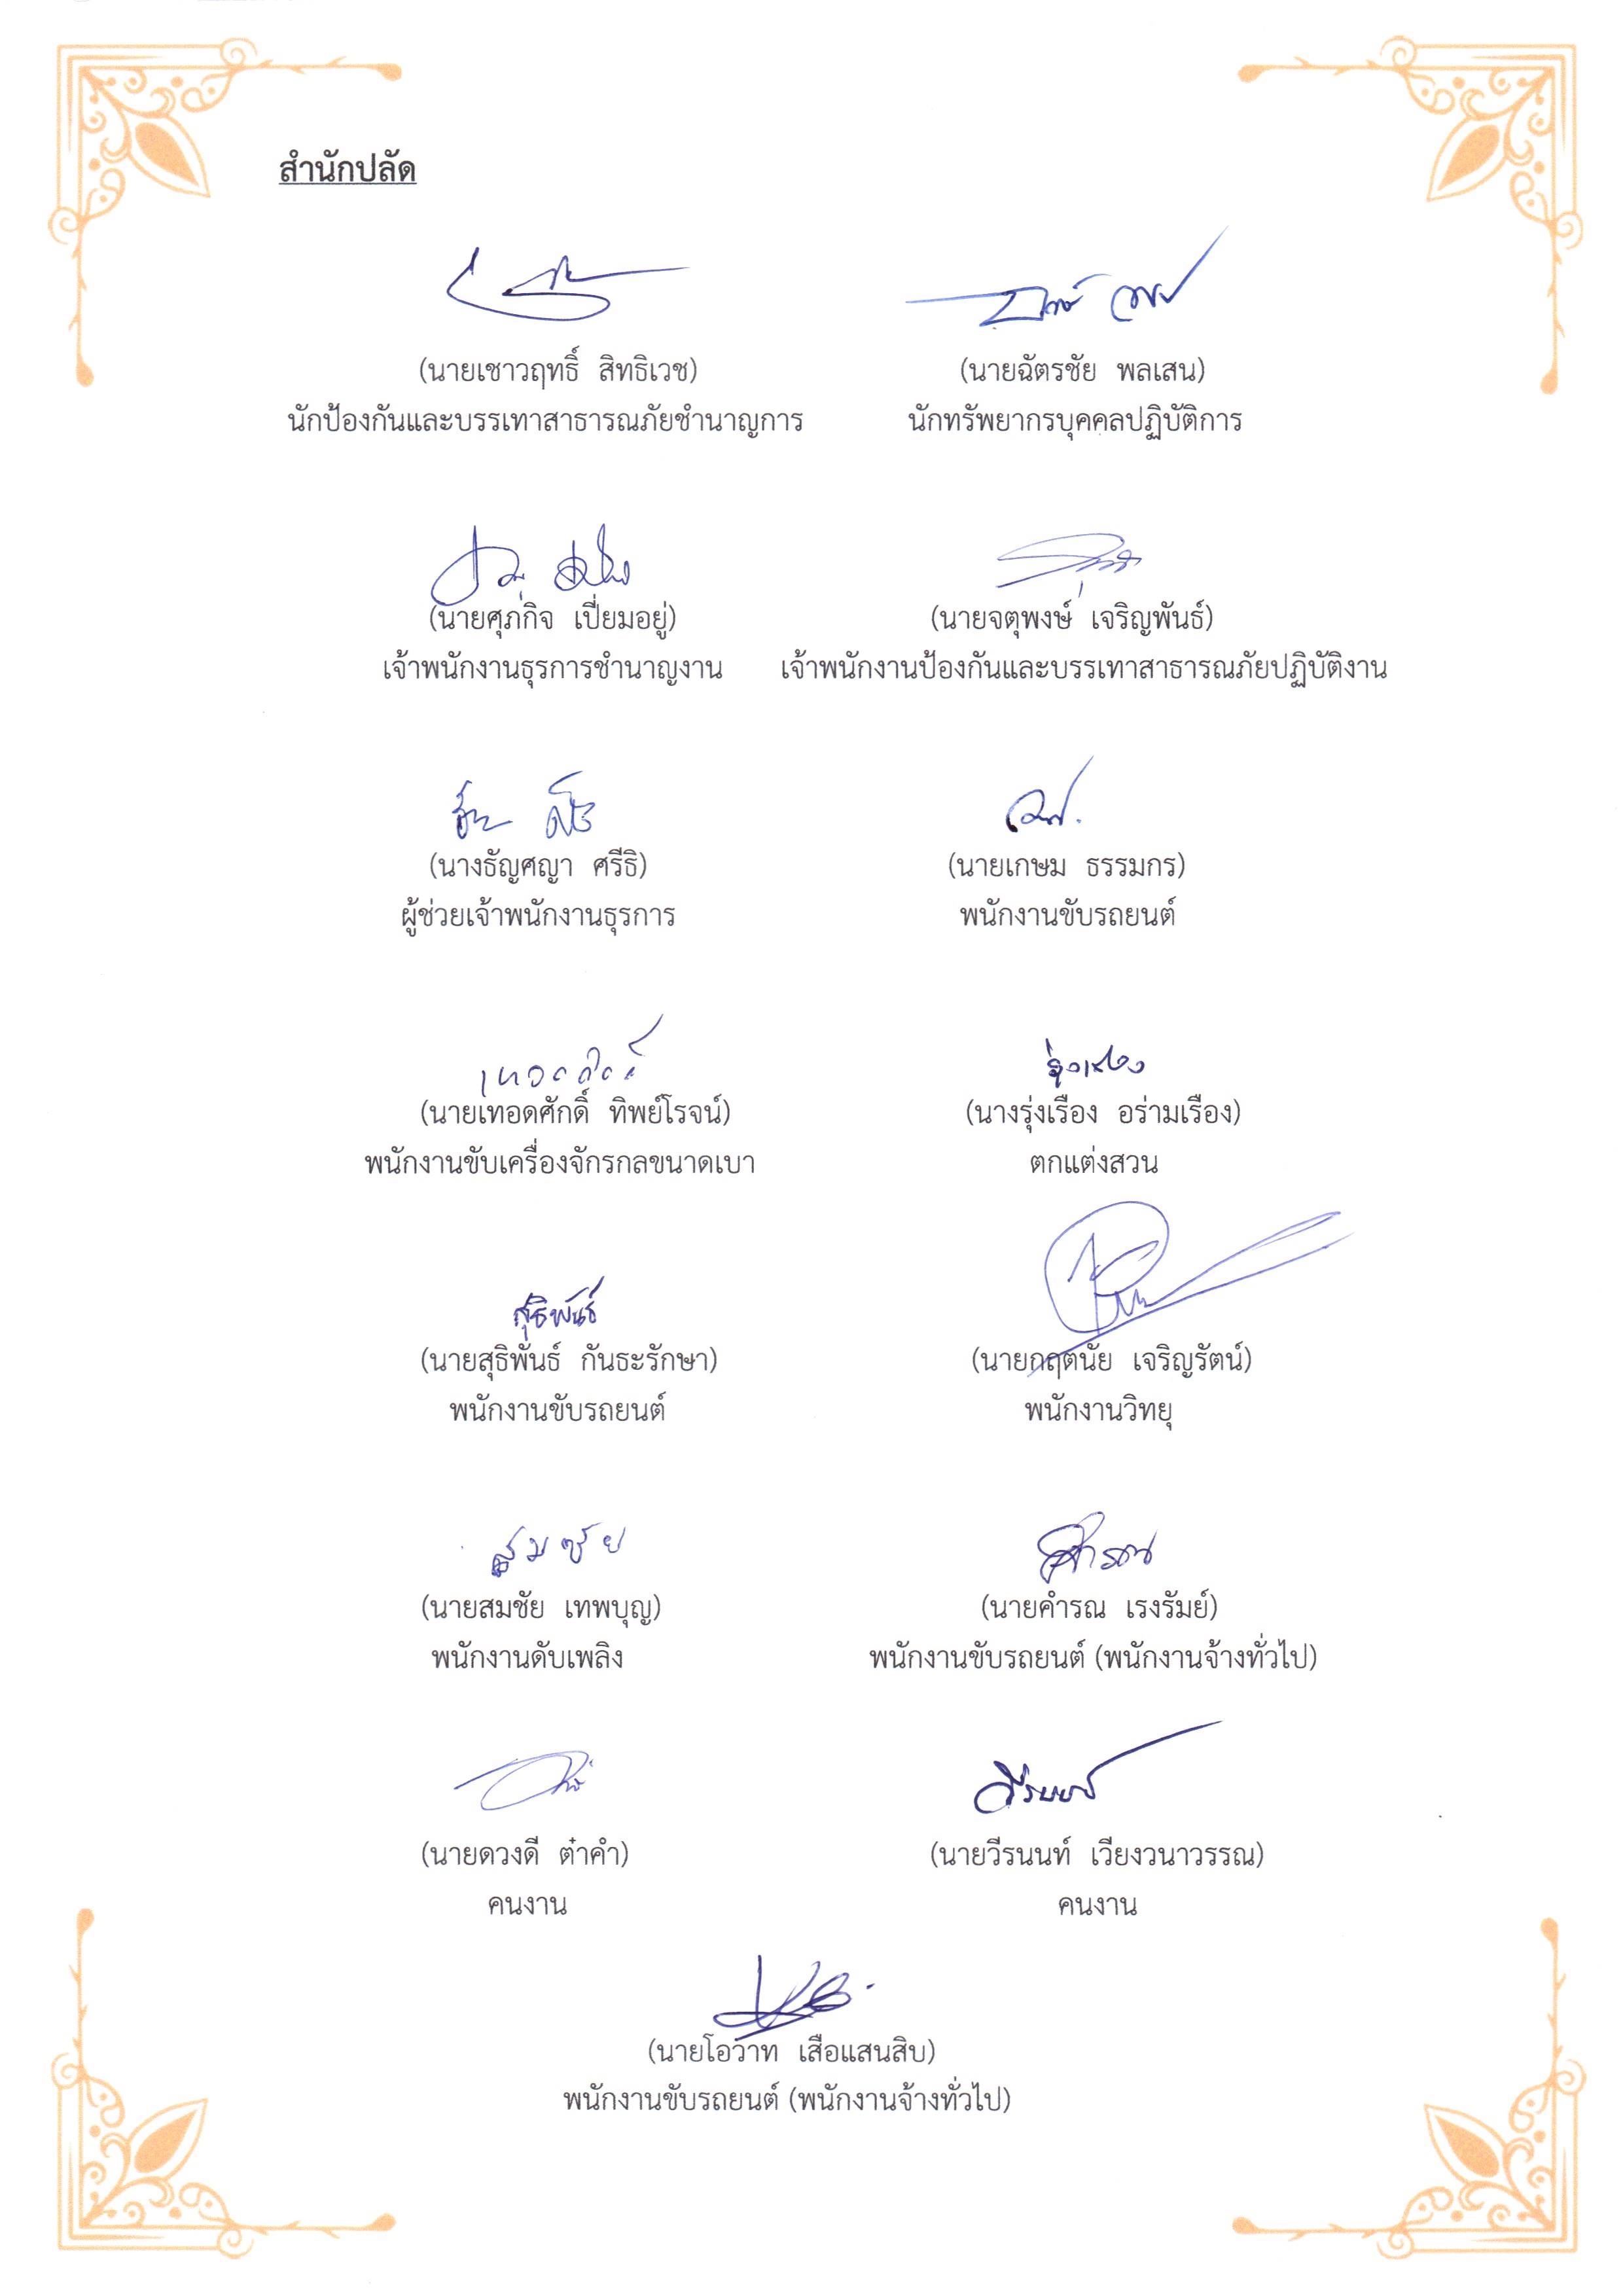 สำนักปลัด
(นายเชาวฤทธิ์ สิทธิเวช) (นายฉัตรชัย พลเสน)
นักป้องกันและบรรเทาสาธารณภัยชำนาญการ นักทรัพยากรบุคคลปฏิบัติการ
(นายศุภกิจ เปี่ยมอยู่) (นายจตุพงษ์ เจริญพันธ์)
เจ้าพนักงานธุรการชำนาญงาน เจ้าพนักงานป้องกันและบรรเทาสาธารณภัยปฏิบัติงาน
(นางธัญศญา ศรีธิ) (นายเกษม ธรรมกร)
ผู้ช่วยเจ้าพนักงานธุรการ พนักงานขับรถยนต์
รุ่งเรือง
(นายเทอดศักดิ์ ทิพย์โรจน์) (นางรุ่งเรือง อร่ามเรือง)
พนักงานขับเครื่องจักรกลขนาดเบา ตกแต่งสวน
สุธิพันธ์
(นายสุธิพันธ์ กันธะรักษา) (นายกฤตนัย เจริญรัตน์)
พนักงานขับรถยนต์ พนักงานวิทยุ
สมชัย คำรณ
(นายสมชัย เทพบุญ) (นายคำรณ เรงรัมย์)
พนักงานดับเพลิง พนักงานขับรถยนต์ (พนักงานจ้างทั่วไป)
วีรนนท์
(นายดวงดี ต๋าคำ) (นายวีรนนท์ เวียงวนาวรรณ)
คนงาน คนงาน
(นายโอวาท เสือแสนสิบ)
พนักงานขับรถยนต์ (พนักงานจ้างทั่วไป)